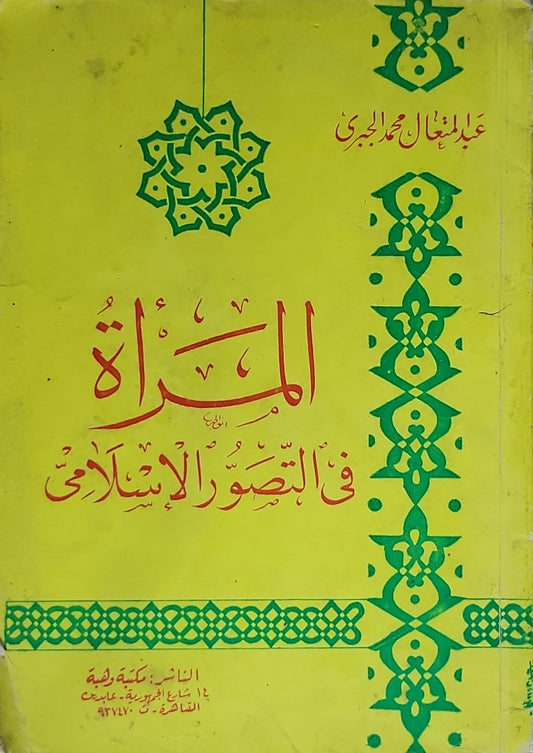 عبد المتعال محمد الجبرى
المرأة
فى التصور الإسلامى
الناشر: مكتبة وهبة
١٤ شارع الجمهورية - عابدين
القاهرة - ت ٩٣٧٤٧٠